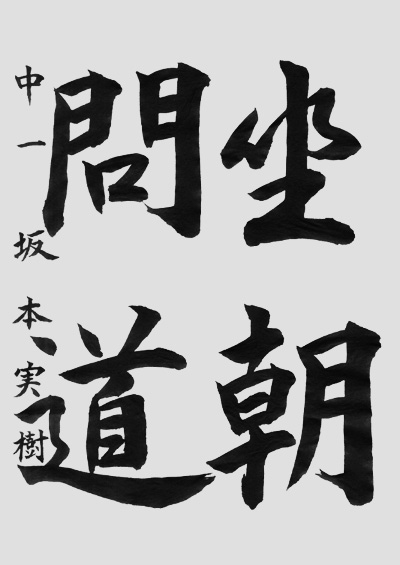 坐朝
問道
中一 坂本実樹